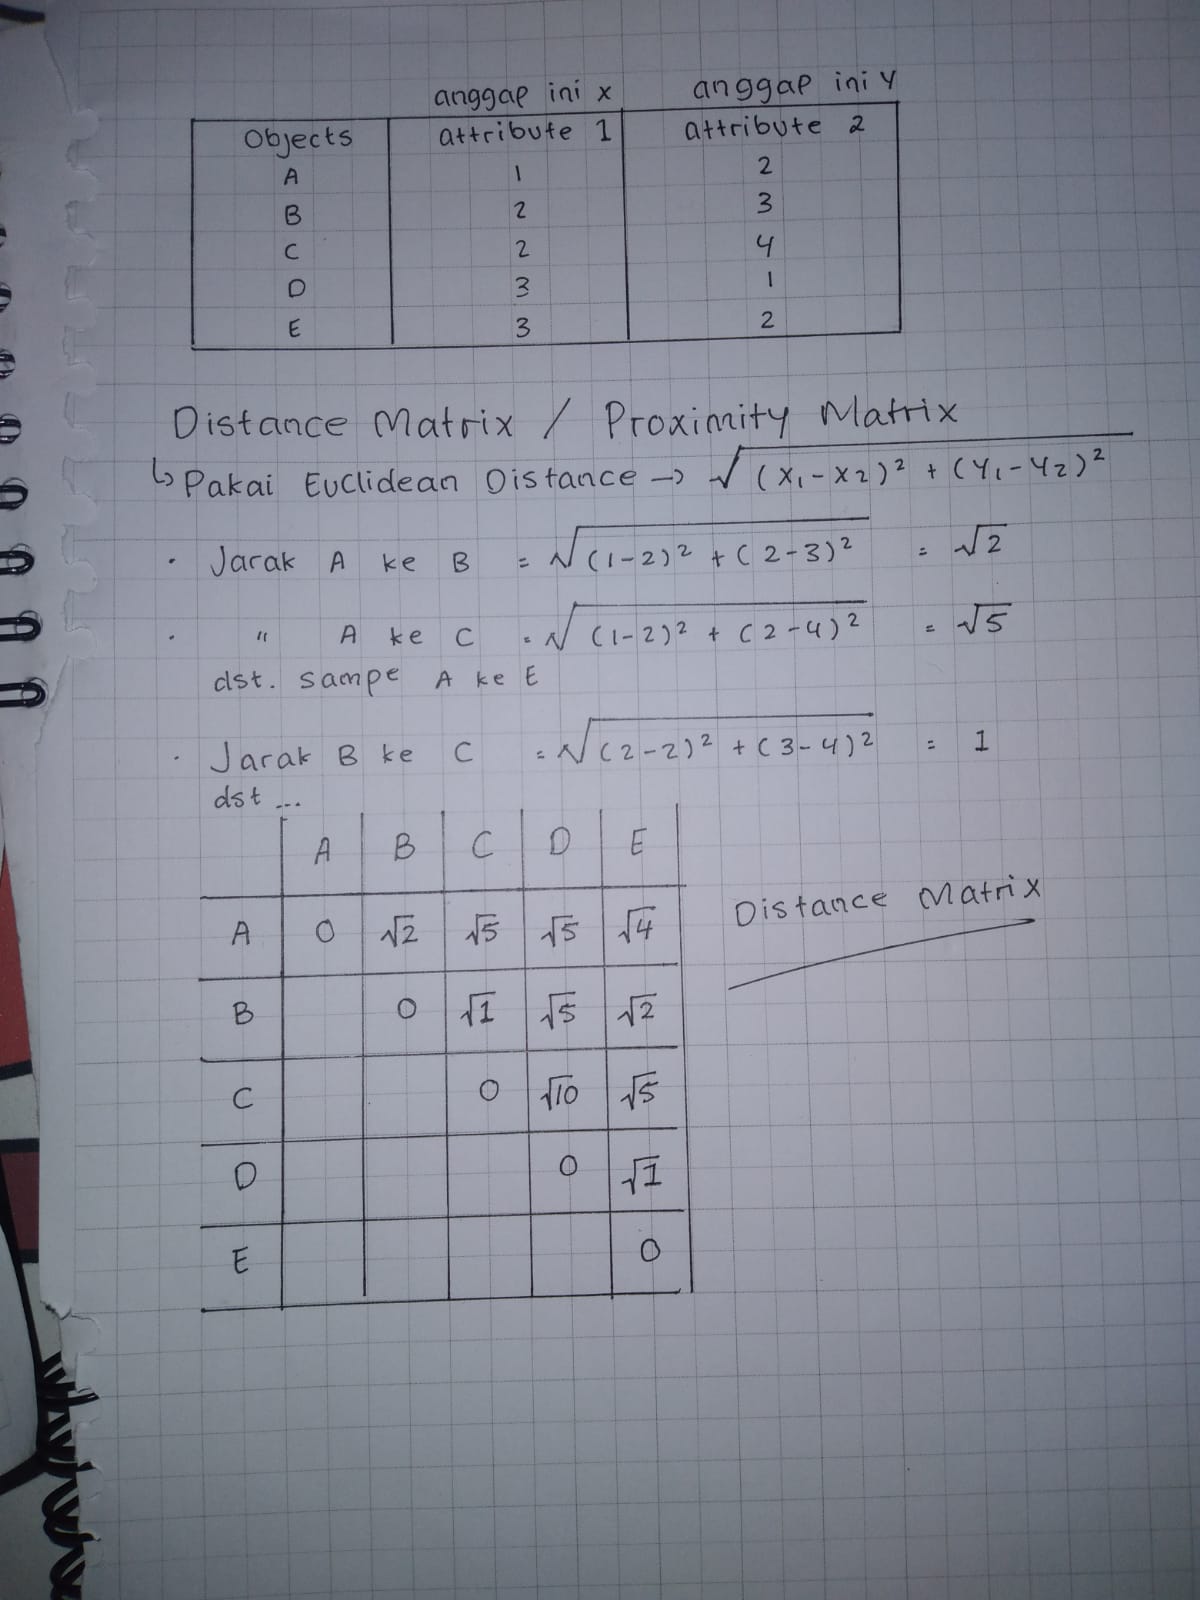 anggap ini x anggap ini Y
Objects attribute 1 attribute 2
A 1 2
B 2 3
C 2 4
D 3 1
E 3 2
Distance Matrix / Proximity Matrix
↳ Pakai Euclidean Distance → √(x₁-x₂)² + (Y₁-Y₂)²
• Jarak A ke B = √(1-2)² + (2-3)² = √2
• " A ke C = √(1-2)² + (2-4)² = √5
dst. sampe A ke E
• Jarak B ke C = √(2-2)² + (3-4)² = 1
dst ...
A B C D E
A 0 √2 √5 √5 √4
B 0 √1 √5 √2
C 0 √10 √5
D 0 √1
E 0
Distance Matrix